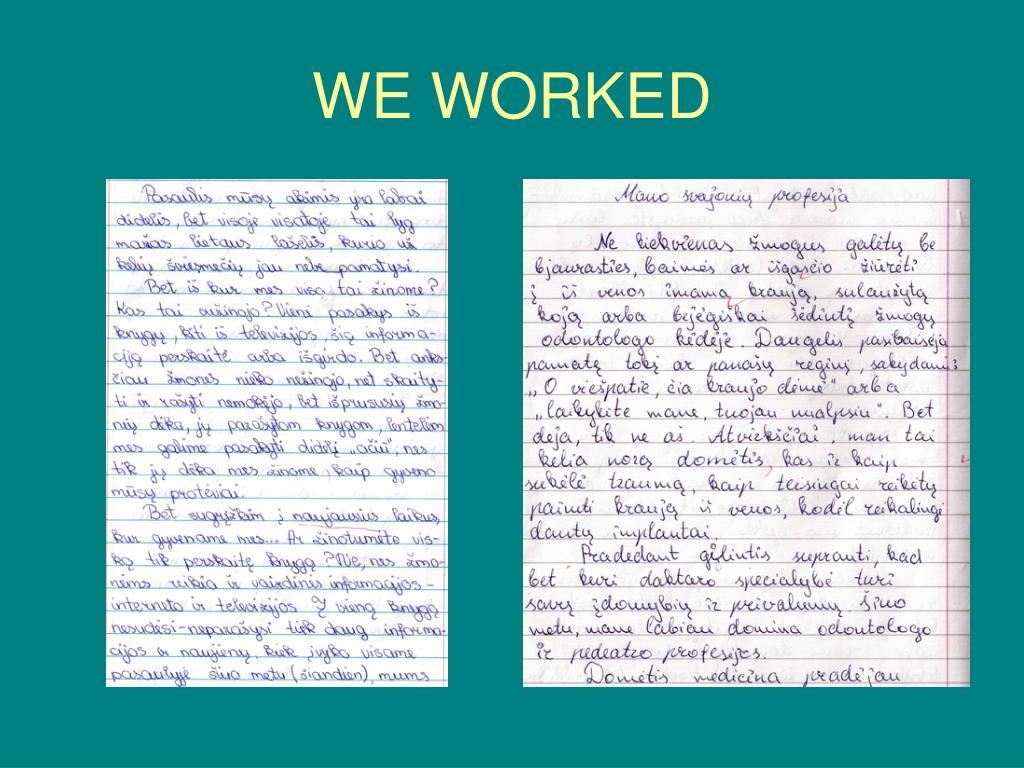 WE WORKED
Pasaulis mūsų akimis yra labai
didelis, bet visoje visatoje tai lyg
mažas lietaus lašelis, kurio už
kelių šviesmečių jau nebe pamatysi.
Bet iš kur mes visa tai žinome?
Kas tai sužinojo? Vieni pasakys iš
knygų, kiti iš televizijos, šią informa-
ciją perskaitė arba išgirdo. Bet anks-
čiau žmonės nieko nežinojo, net skaity-
ti ir rašyti nemokėjo, bet išprususių žmo-
nių dėka, jų parašytom knygom, lentelėm
mes galime pasakyti didelį „ačiū", nes
tik jų dėka mes žinome, kaip gyveno
mūsų protėviai.
Bet sugrįžkim į naujausius laikus,
kur gyvename mes... Ar žinotumėte vis-
ką tik perskaitę knygą? Ne, nes žmo-
nėms reikia ir vaizdinės informacijos -
interneto ir televizijos Į vieną knygą
nesudėsi-neparašysi tiek daug informa-
cijos ir naujienų, kiek įvyko visame
pasaulyje šiuo metu (šiandien), mums
Mano svajonių profesija
Ne kiekvienas žmogus galėtų be
bjaurasties, baimės ar išgąsčio žiūrėti
į iš venos imamą kraują, sulaužytą
koją arba bejėgiškai sėdintį žmogų
odontologo kėdėje. Daugelis pasibaisėja
pamatę tokį ar panašų reginį, sakydami:
„O viešpatie, čia kraujo dėmė" arba
„laikykite mane, tuojau nualpsiu". Bet
deja, tik ne aš. Atvirkščiai, man tai
kelia norą domėtis, kas ir kaip
sukėlė traumą, kaip teisingai reikėtų
paimti kraują iš venos, kodėl reikalingi
dantų implantai.
Pradedant gilintis supranti, kad
bet kuri daktaro specialybė turi
savų įdomybių ir privalumų. Šiuo
metu, mane labiau domina odontologo
ir pedeatro profesijos.
Domėtis medicina pradėjau